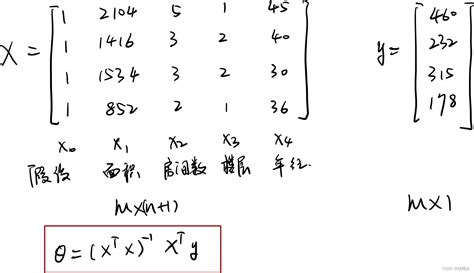 X = [1 2104 5 1 45
1 1416 3 2 40
1 1534 3 2 30
1 852 2 1 36]
y = [460
232
315
178]
x₀ x₁ x₂ x₃ x₄
假设 面积 房间数 楼层 年纪
m×(n+1)
m×1
θ = (XᵀX)⁻¹ Xᵀy